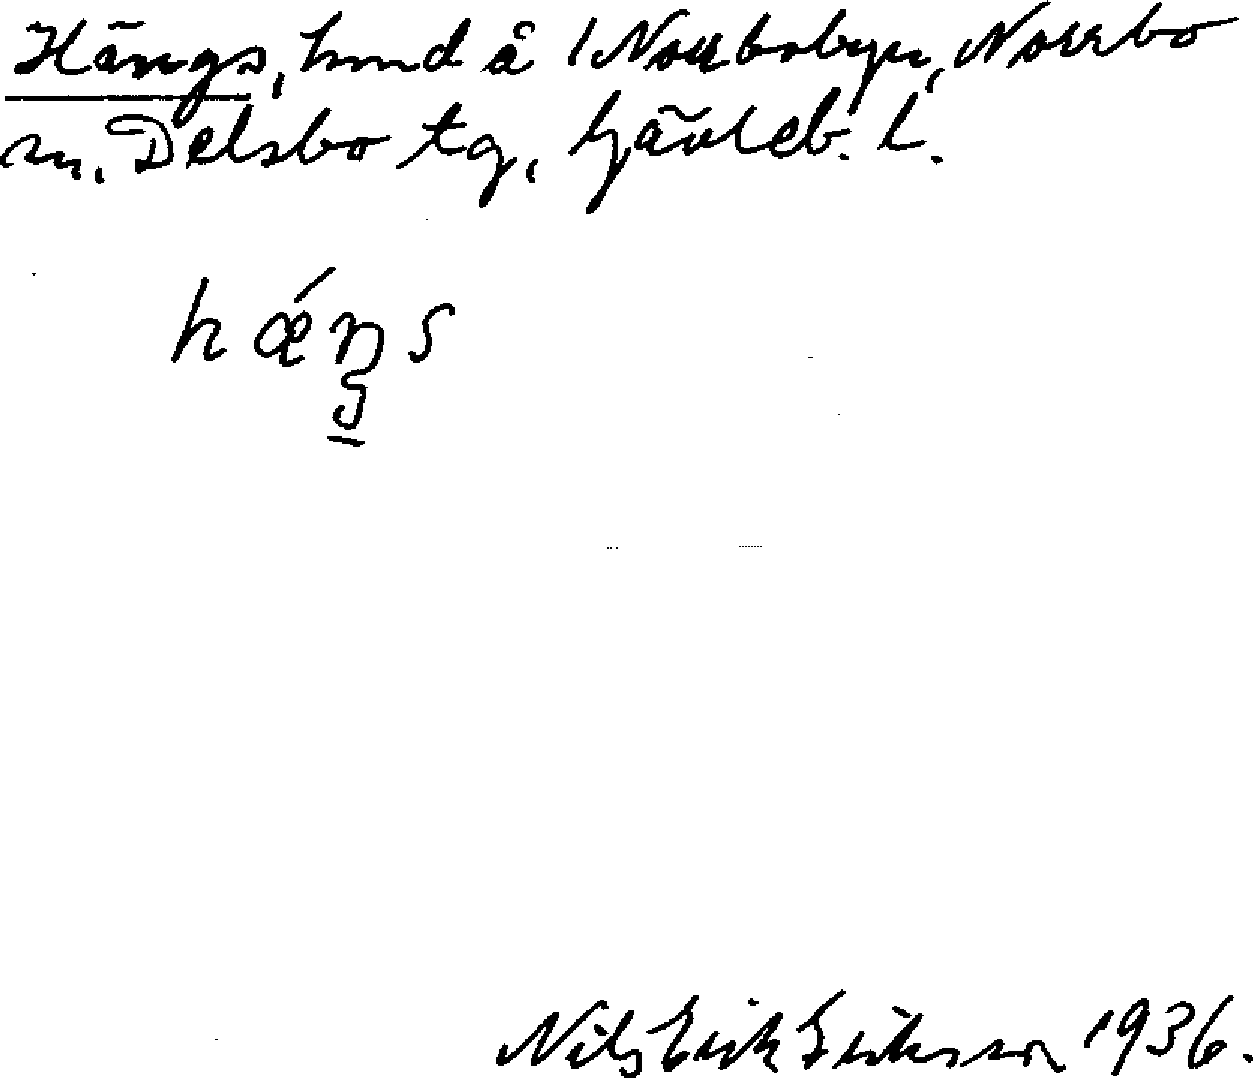 Hängs, hmd å 1 Norrbobyn, Norrbo
sn. Delsbo tg, Gävleb. l.
hǽŋs
Nils Erik Eriksson 1936.